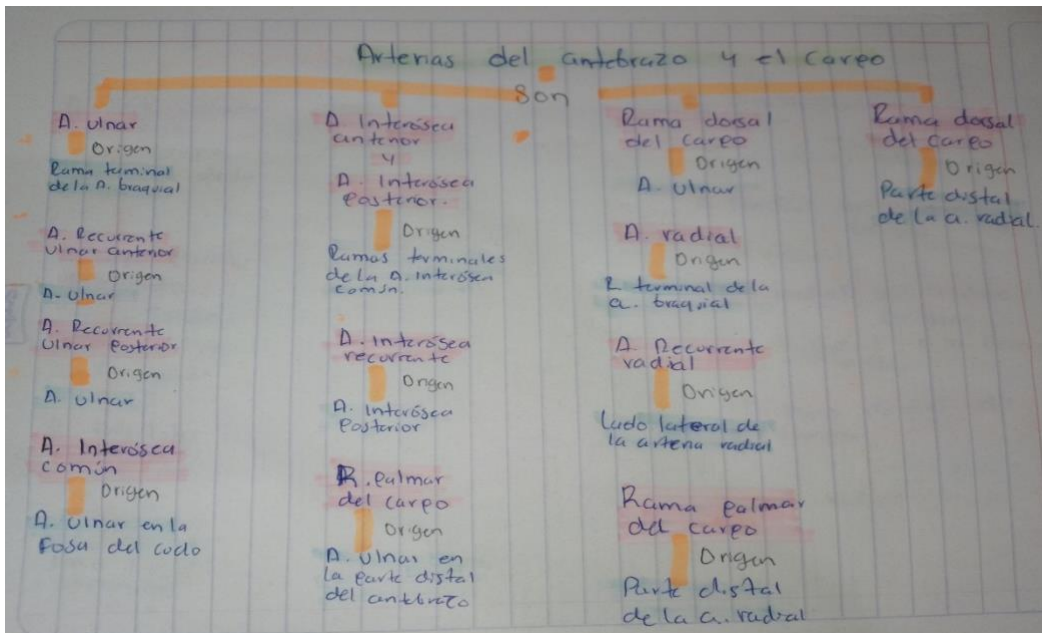 Arterias del antebrazo y el carpo
Son
A. Ulnar
Origen
Rama terminal
de la A. braquial
A. Recurrente
Ulnar anterior
Origen
A. Ulnar
A. Recurrente
Ulnar Posterior
Origen
A. Ulnar
A. Interósea
común
Origen
A. Ulnar en la
Fosa del codo
A. Interósea
anterior
y
A. Interósea
Posterior.
Origen
Ramas terminales
de la A. interósea
común.
A. Interósea
recurrente
Origen
A. Interósea
Posterior
R. Palmar
del carpo
Origen
A. Ulnar en
la parte distal
del antebrazo
Rama dorsal
del carpo
Origen
A. Ulnar
A. radial
Origen
R. terminal de la
a. braquial
A. Recurrente
radial
Origen
Lado lateral de
la arteria radial
Rama palmar
del carpo
Origen
Parte distal
de la a. radial
Rama dorsal
del carpo
Origen
Parte distal
de la a. radial.